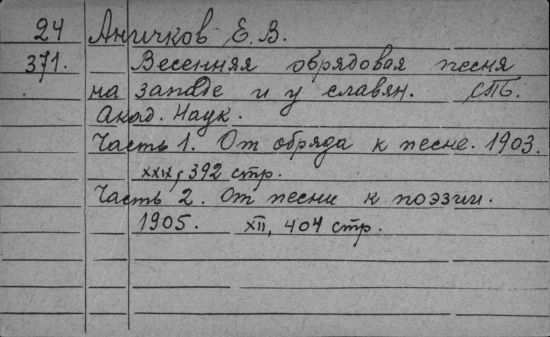 24 Аничков Е. В.
371. Весенняя обрядовая песня
на западе и у славян. СПБ.
Акад. Наук.
Часть 1. От обряда к песне. 1903.
XXIX, 392 стр.
Часть 2. От песни к поэзии.
1905. XII, 404 стр.